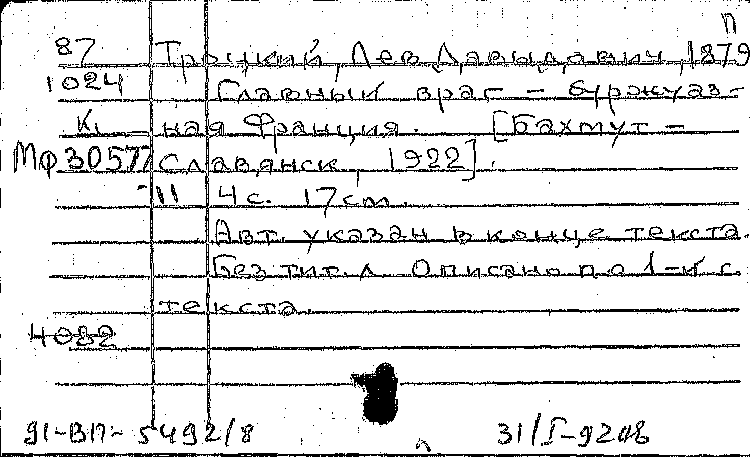 п
87 Троцкий, Лев Давыдович, 1879
1024 Главный враг – буржуаз-
К1 ная Франция. [Бахмут –
Мф30577 Славянск, 1922].
-"- 4с. 17см.
Авт. указан в конце текста.
Без тит. л. Описано по 1-й с.
текста.
4082
91-ВП- 5492/8 31/I-92